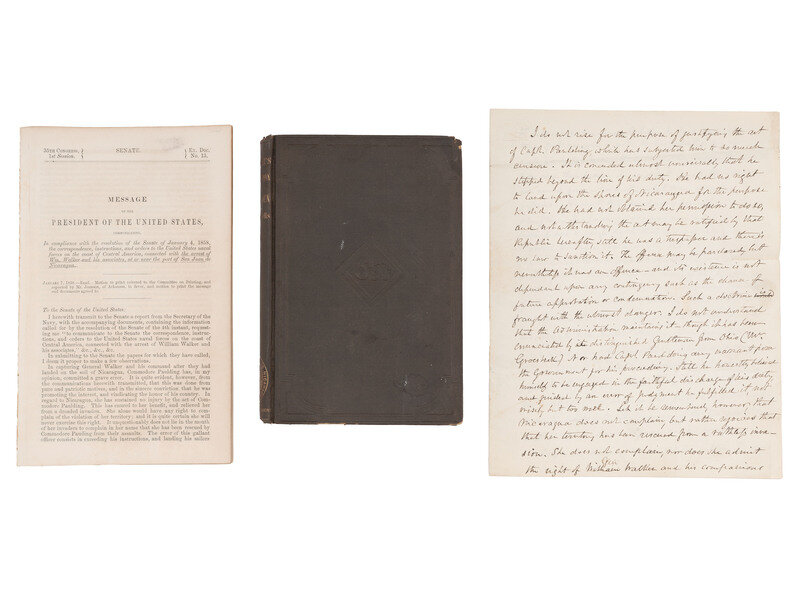 35TH CONGRESS, SENATE. EX. DOC.
1st Session. No. 13.
MESSAGE
OF THE
PRESIDENT OF THE UNITED STATES,
COMMUNICATING,
In compliance with the resolution of the Senate of January 4, 1858,
the correspondence, instructions, and orders to the United States naval
forces on the coast of Central America, connected with the arrest of
Wm. Walker and his associates, at or near the port of San Juan de
Nicaragua.
JANUARY 7, 1858.—Read. Motion to print referred to the Committee on Printing, and
reported by Mr. Johnson, of Arkansas, in favor, and motion to print the message
and documents agreed to.
To the Senate of the United States:
I herewith transmit to the Senate a report from the Secretary of the
Navy, with the accompanying documents, containing the information
called for by the resolution of the Senate of the 4th instant, requesting
me "to communicate to the Senate the correspondence, instructions,
and orders to the United States naval forces on the coast of
Central America, connected with the arrest of William Walker and
his associates," &c., &c., &c.
In submitting to the Senate the papers for which they have called,
I deem it proper to make a few observations.
In capturing General Walker and his command after they had
landed on the soil of Nicaragua, Commodore Paulding has, in my
opinion, committed a grave error. It is quite evident, however, from
the communications herewith transmitted, that this was done from
pure and patriotic motives, and in the sincere conviction that he was
promoting the interest, and vindicating the honor of his country. In
regard to Nicaragua, she has sustained no injury by the act of Commodore
Paulding. This has enured to her benefit, and relieved her
from a dreaded invader. She alone would have any right to complain
of the violation of her territory; and it is quite certain she will
never exercise this right. It unquestionably does not lie in the mouth
of her invaders to complain in her name that she has been rescued by
Commodore Paulding from their assaults. The error of this gallant
officer consists in exceeding his instructions, and landing his sailors
I do not rise for the purpose of justifying the act
of Capt. Paulding which has subjected him to so much
censure. It is conceded almost universally that he
stepped beyond the line of his duty. He had no right
to land upon the shores of Nicaragua for the purpose
he did. He had not obtained her permission to do so,
and notwithstanding the act may be ratified by that
Republic hereafter, still he was a trespasser and there is
no law to sanction it. The offense may be pardoned, but
nevertheless it was an offense— and its existence is not
dependent upon any contingency such as the chance of
future approbation or condemnation. Such a doctrine
fraught with the utmost danger. I do not understand
that the Administration maintains it though it has been
enunciated by distinguished Gentleman from Ohio (Mr.
Groesbeck) Nor had Capt. Paulding any warrant from
the Government for his proceeding. Still he honestly believed
himself to be engaged in the faithful discharge of his duty,
and guided by an error of judgment he fulfilled it not
wisely but too well. Let it be remembered, however, that
Nicaragua does not complain, but rather rejoices that
that her territory has been rescued from a ruthless inva-
sion. She does not complain, nor does she admit
the right of William Walker and his companions